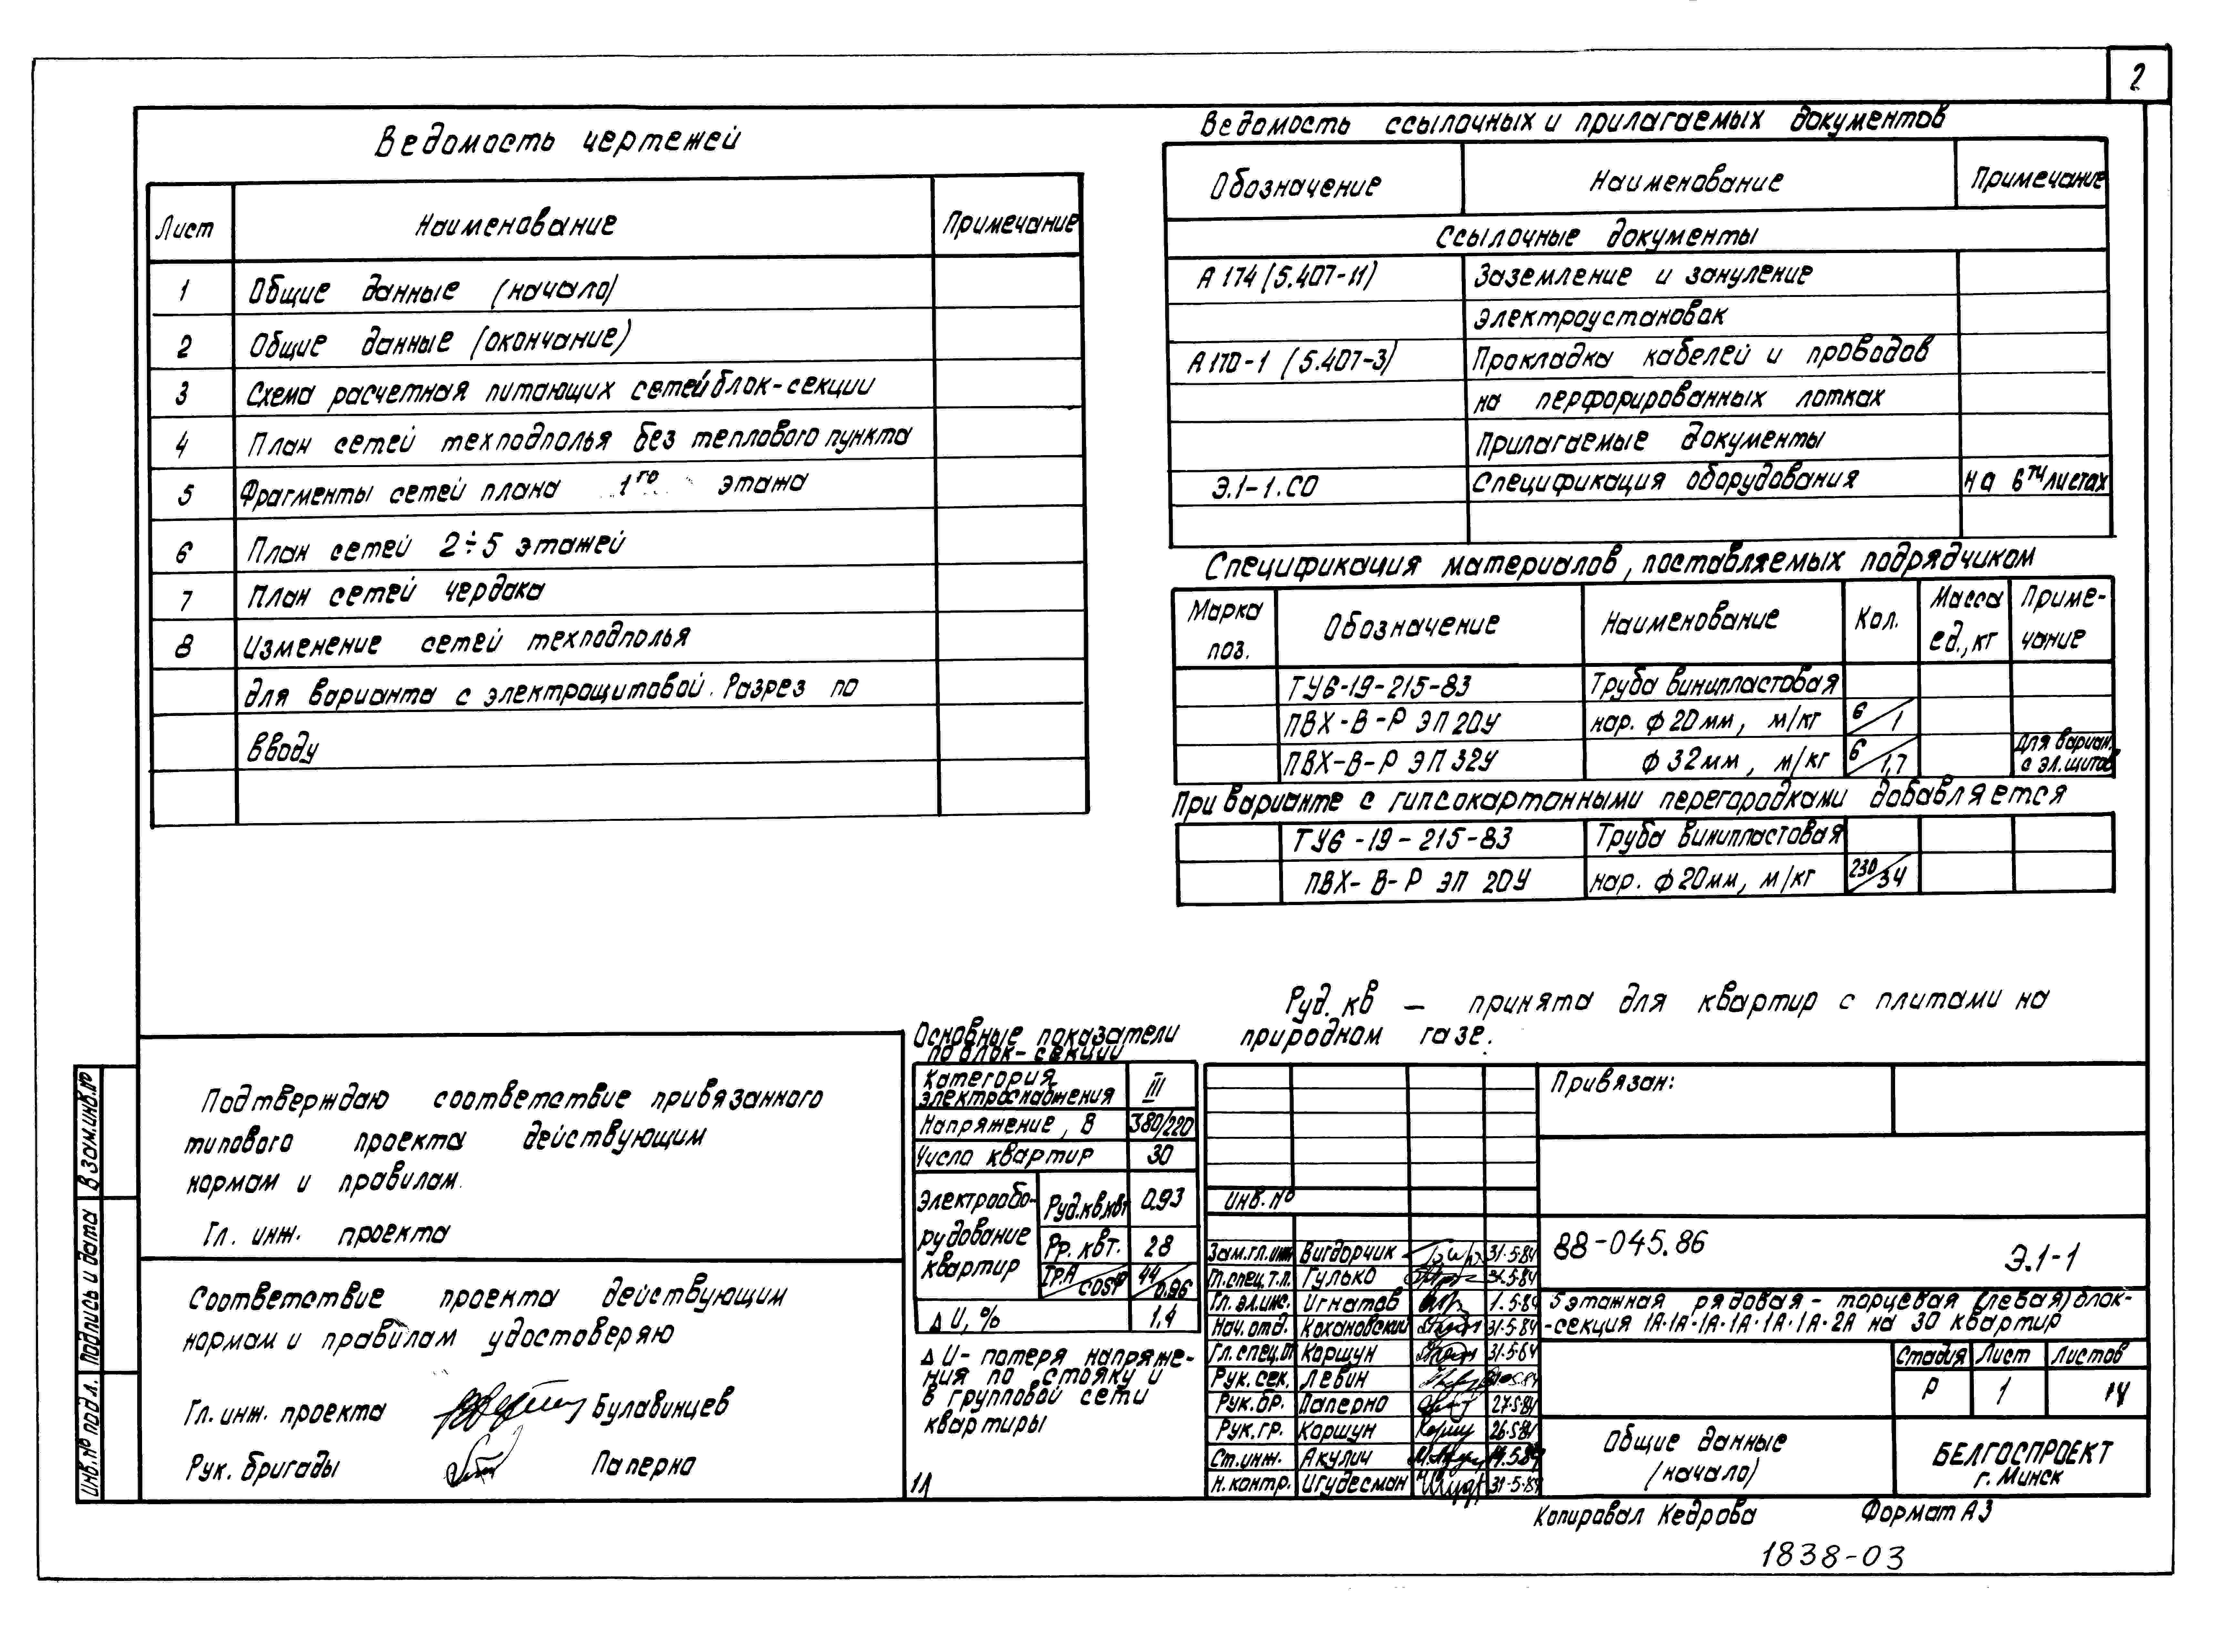 2
Ведомость чертежей
Лист Наименование Примечание
1 Общие данные (начало)
2 Общие данные (окончание)
3 Схема расчетная питающих сетей блок-секции
4 План сетей техподполья без теплового пункта
5 Фрагменты сетей плана 1го этажа
6 План сетей 2÷5 этажей
7 План сетей чердака
8 Изменение сетей техподполья
для варианта с электрощитовой. Разрез по
вводу
Ведомость ссылочных и прилагаемых документов
Обозначение Наименование Примечание
Ссылочные документы
А 174 (5.407-11) Заземление и зануление
электроустановок
А 170-1 (5.407-3) Прокладка кабелей и проводов
на перфорированных лотках
Прилагаемые документы
Э.1-1.СО Спецификация оборудования на 6ти листах
Спецификация материалов, поставляемых подрядчиком
Марка поз. Обозначение Наименование Кол. Масса ед., кг Приме-чание
ТУ6-19-215-83 Труба винипластовая
ПВХ-В-Р ЭП 20У нар. ф 20мм, м/кг 6/1
ПВХ-В-Р ЭП 32У ф 32мм, м/кг 6/1,7 Для вариан. с эл.щитов
При варианте с гипсокартонными перегородками добавляется
ТУ6-19-215-83 Труба винипластовая
ПВХ-В-Р ЭП 20У нар. ф 20мм, м/кг 230/34
Руд. кв — принята для квартир с плитами на
природном газе.
Подтверждаю соответствие привязанного
типового проекта действующим
нормам и правилам.
Гл. инж. проекта
Соответствие проекта действующим
нормам и правилам удостоверяю
Гл. инж. проекта Булавинцев
Рук. бригады Паперно
Основные показатели
по блок-секции
Категория электроснабжения III
Напряжение, В 380/220
Число квартир 30
Электрообо-рудование квартир Руд.кв.квт 0.93
Рр. квт. 28
Iр.А/cosφ 44/0.96
Δ U, % 1,4
Δ U - потеря напряже-
ния по стояку и
в групповой сети
квартиры
1Л
Инв. №
Зам.гл.инж Вигдорчик 31.5.84
Гл.спец.т.п. Гулько 31.5.84
Гл. эл.инс. Игнатов 1.5.84
Нач.отд. Кохановский 31.5.84
Гл.спец.от Коршун 31.5.84
Рук.сек. Левин
Рук.бр. Паперно 27.5.84
Рук.гр. Коршун 26.5.84
Ст.инж. Акулич
Н.контр. Игудесман 31.5.84
Привязан:
88-045.86
Э.1-1
5 этажная рядовая - торцевая (левая) блок-
-секция 1А·1А·1А·1А·1А·1А·2А на 30 квартир
Стадия Лист Листов
Р 1 14
Общие данные
(начало)
БЕЛГОСПРОЕКТ
г. Минск
Копировал Кедрова Формат А3
1838-03
Инв.№ подл. Подпись и дата Взам.инв.№